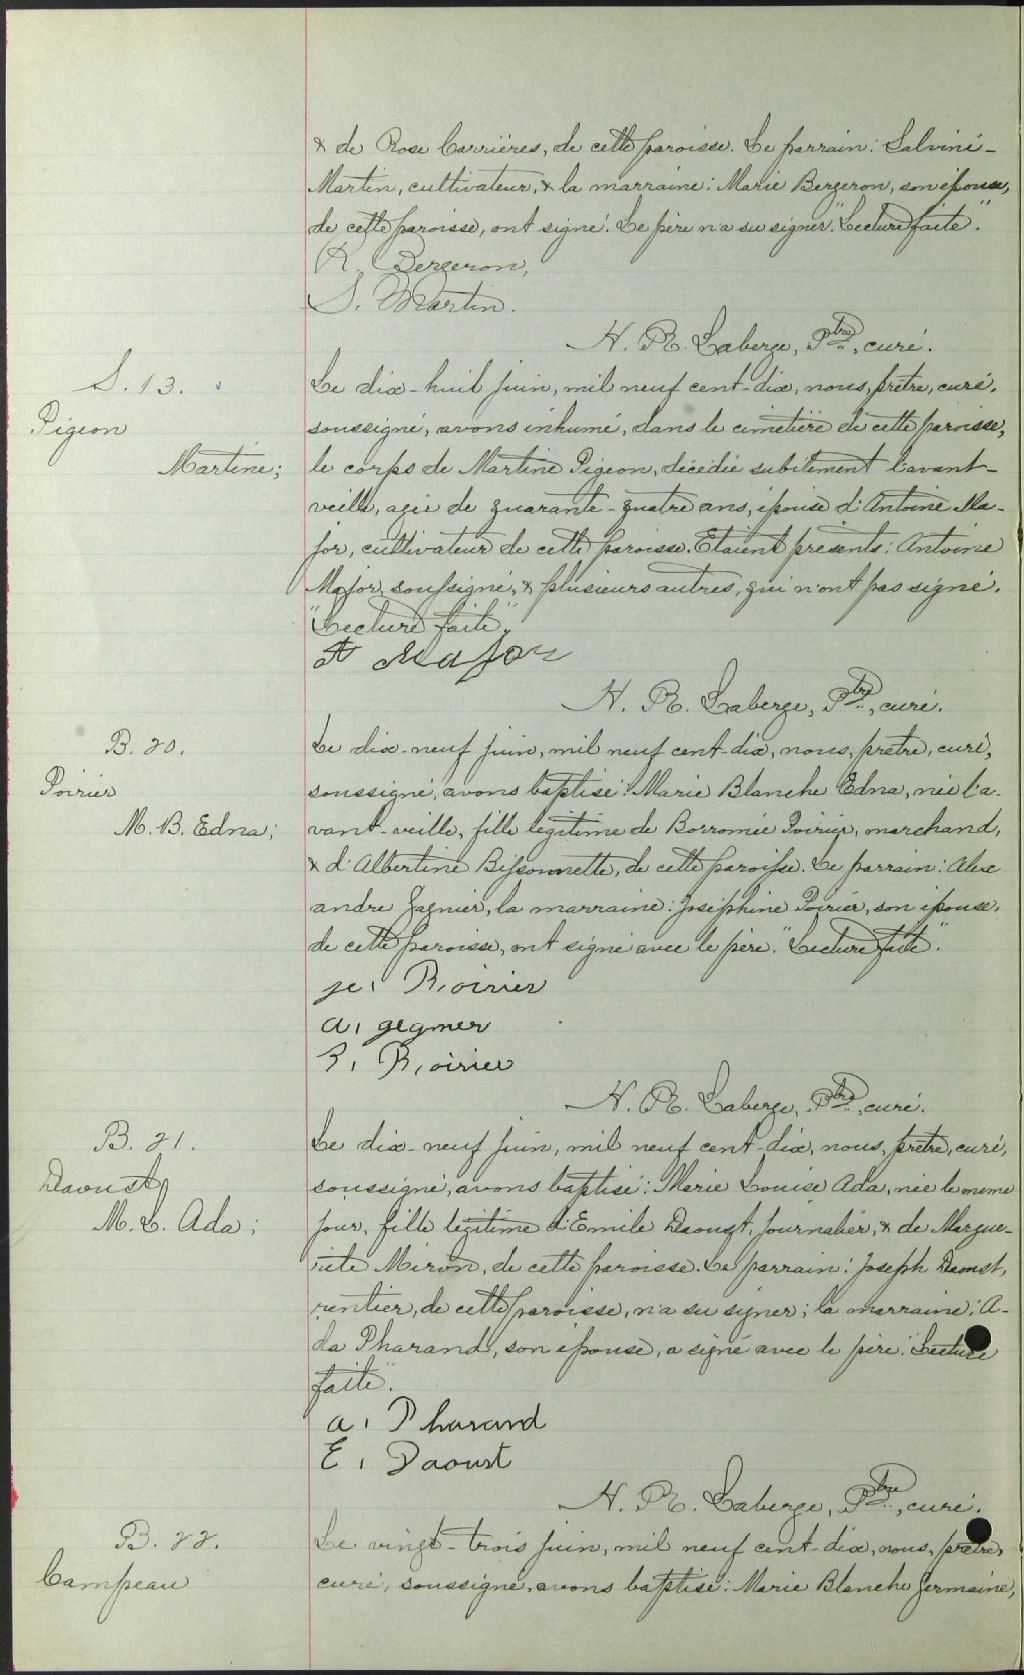 & de Rose Carrières, de cette paroisse. Le parrain: Salvini-
Martin, cultivateur, & la marraine: Marie Bergeron, son épouse,
de cette paroisse, ont signé. Le père n'a su signer. "Lecture faite".
R. Bergeron,
S. Martin.
H. R. Laberge, Ptre, curé.
S. 13.
Pigeon
Martine;
Le dix-huit juin, mil neuf cent-dix, nous, prêtre, curé,
soussigné, avons inhumé, dans le cimetière de cette paroisse,
le corps de Martine Pigeon, décédée subitement l'avant-
veille, agée de quarante-quatre ans, épouse d'Antoine Ma-
jor, cultivateur de cette paroisse. Etaient présents: Antoine
Major, soussigné, & plusieurs autres, qui n'ont pas signé.
"Lecture faite".
A Major
H. R. Laberge, Ptre, curé.
B. 20.
Poirier
M. B. Edna;
Le dix-neuf juin, mil neuf cent-dix, nous, prêtre, curé,
soussigné, avons baptisé: Marie Blanche Edna, née l'a-
vant-veille, fille légitime de Borromée Poirier, marchand,
& d'Albertine Bissonnette, de cette paroisse. Le parrain: Alex
andre Gagnier, la marraine: Joséphine Poirier, son épouse,
de cette paroisse, ont signé avec le père. "Lecture faite".
je. Poirier
a. gegnier
B. Poirier
H. R. Laberge, Ptre, curé.
B. 21.
Daoust
M. L. Ada;
Le dix-neuf juin, mil neuf cent-dix, nous, prêtre, curé,
soussigné, avons baptisé: Marie Louise Ada, née le même
jour, fille légitime d'Emile Daoust, journalier, & de Margue-
rite Miron, de cette paroisse. Le parrain: Joseph Daoust,
rentier, de cette paroisse, n'a su signer; la marraine: A-
da Pharand, son épouse, a signé avec le père. "Lecture
faite".
a. Pharand
E. Daoust
H. R. Laberge, Ptre, curé.
B. 22.
Campeau
Le vingt-trois juin, mil neuf cent-dix, nous, prêtre,
curé, soussigné, avons baptisé: Marie Blanche Germaine,